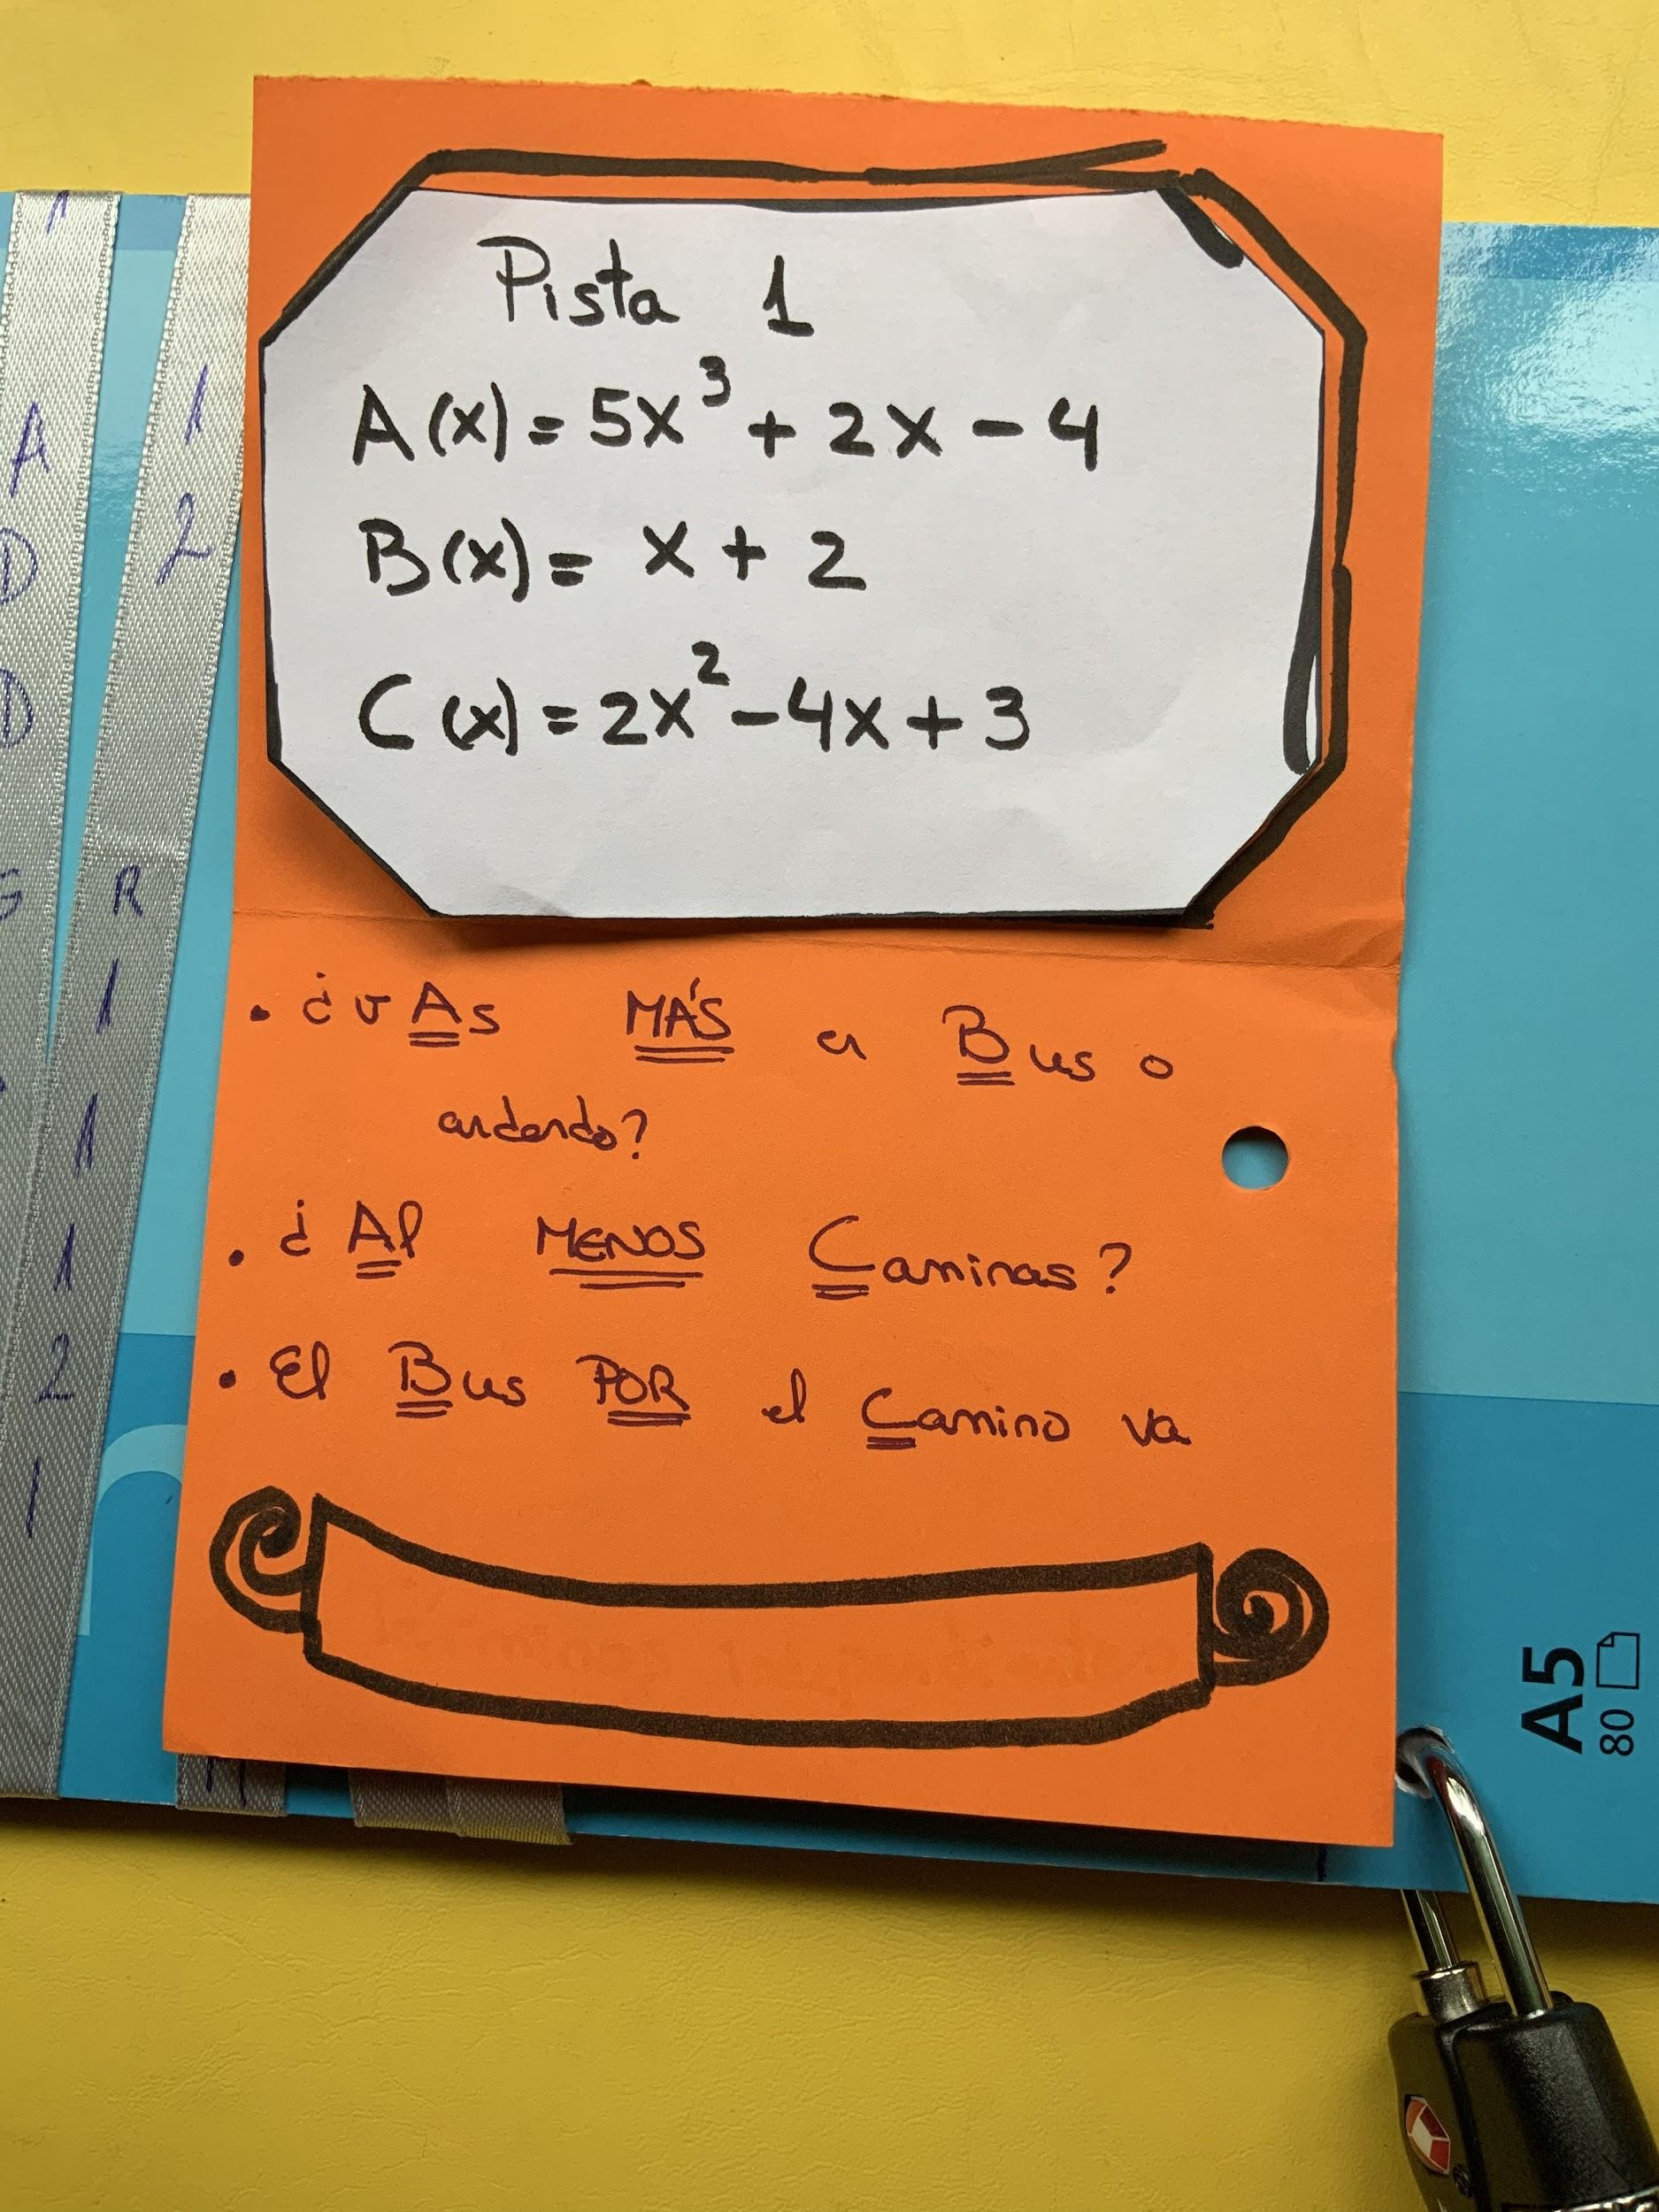 Pista 1
A(x) = 5x³ + 2x - 4
B(x) = x + 2
C(x) = 2x² - 4x + 3
. ¿vAs MÁS a Bus o
andando?
. ¿Al MENOS Caminas?
. El Bus POR el Camino va
1
A
D
D
G
1
2
R
1
1
1
2
1
A5
80